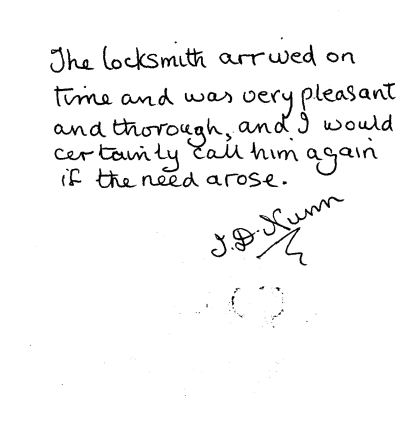 The locksmith arrived on
time and was very pleasant
and thorough, and I would
certainly call him again
if the need arose.
J.D. Nunn